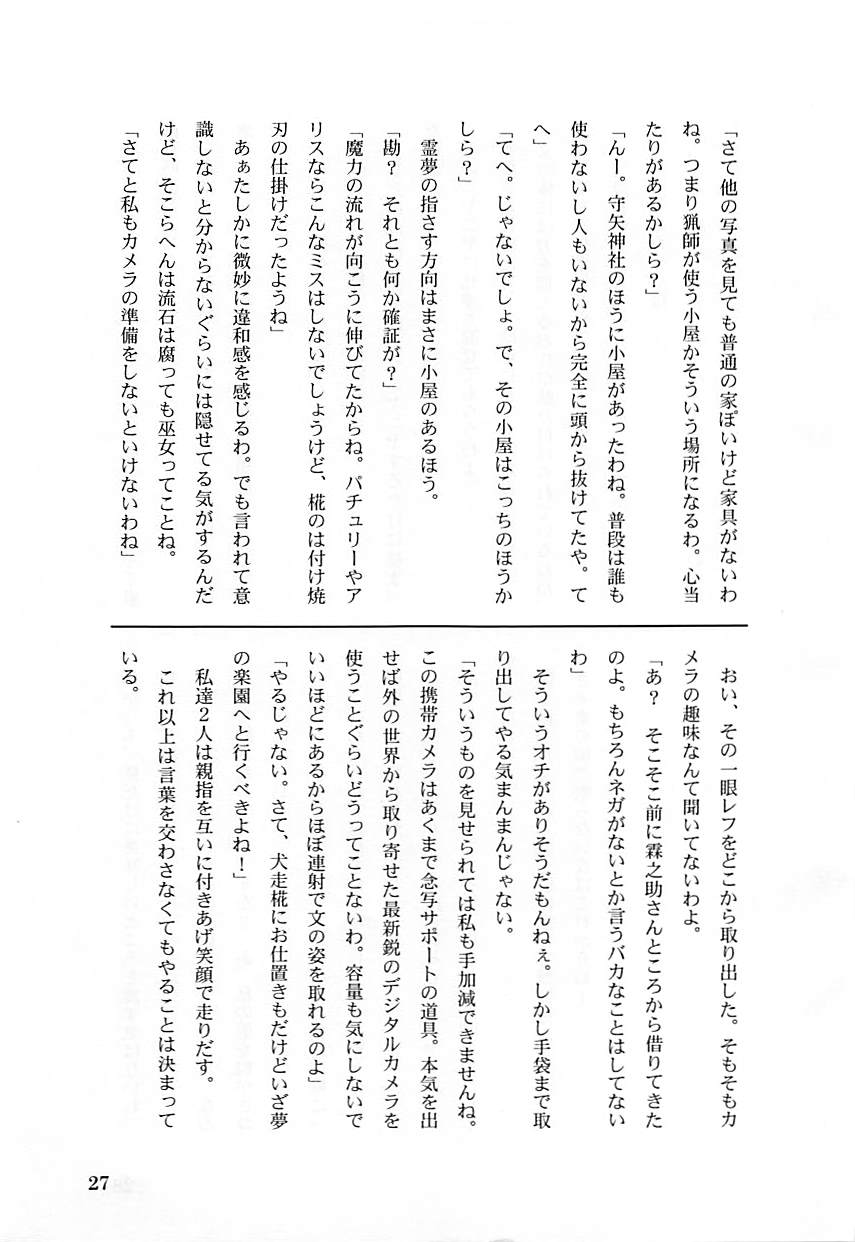 「さて他の写真を見ても普通の家ぽいけど家具がないわ
ね。つまり猟師が使う小屋かそういう場所になるわ。心当
たりがあるかしら？」
「んー。守矢神社のほうに小屋があったわね。普段は誰も
使わないし人もいないから完全に頭から抜けてたや。て
へ」
「てへ。じゃないでしょ。で、その小屋はこっちのほうか
しら？」
　霊夢の指さす方向はまさに小屋のあるほう。
「勘？　それとも何か確証が？」
「魔力の流れが向こうに伸びてたからね。パチュリーやア
リスならこんなミスはしないでしょうけど、椛のは付け焼
刃の仕掛けだったようね」
　あぁたしかに微妙に違和感を感じるわ。でも言われて意
識しないと分からないぐらいには隠せてる気がするんだ
けど、そこらへんは流石は腐っても巫女ってことね。
「さてと私もカメラの準備をしないといけないわね」
　おい、その一眼レフをどこから取り出した。そもそもカ
メラの趣味なんて聞いてないわよ。
「あ？　そこそこ前に霖之助さんところから借りてきた
のよ。もちろんネガがないとか言うバカなことはしてない
わ」
　そういうオチがありそうだもんねぇ。しかし手袋まで取
り出してやる気まんまんじゃない。
「そういうものを見せられては私も手加減できませんね。
この携帯カメラはあくまで念写サポートの道具。本気を出
せば外の世界から取り寄せた最新鋭のデジタルカメラを
使うことぐらいどうってことないわ。容量も気にしないで
いいほどにあるからほぼ連射で文の姿を取れるのよ」
「やるじゃない。さて、犬走椛にお仕置きもだけどいざ夢
の楽園へと行くべきよね！」
　私達２人は親指を互いに付きあげ笑顔で走りだす。
　これ以上は言葉を交わさなくてもやることは決まって
いる。
27